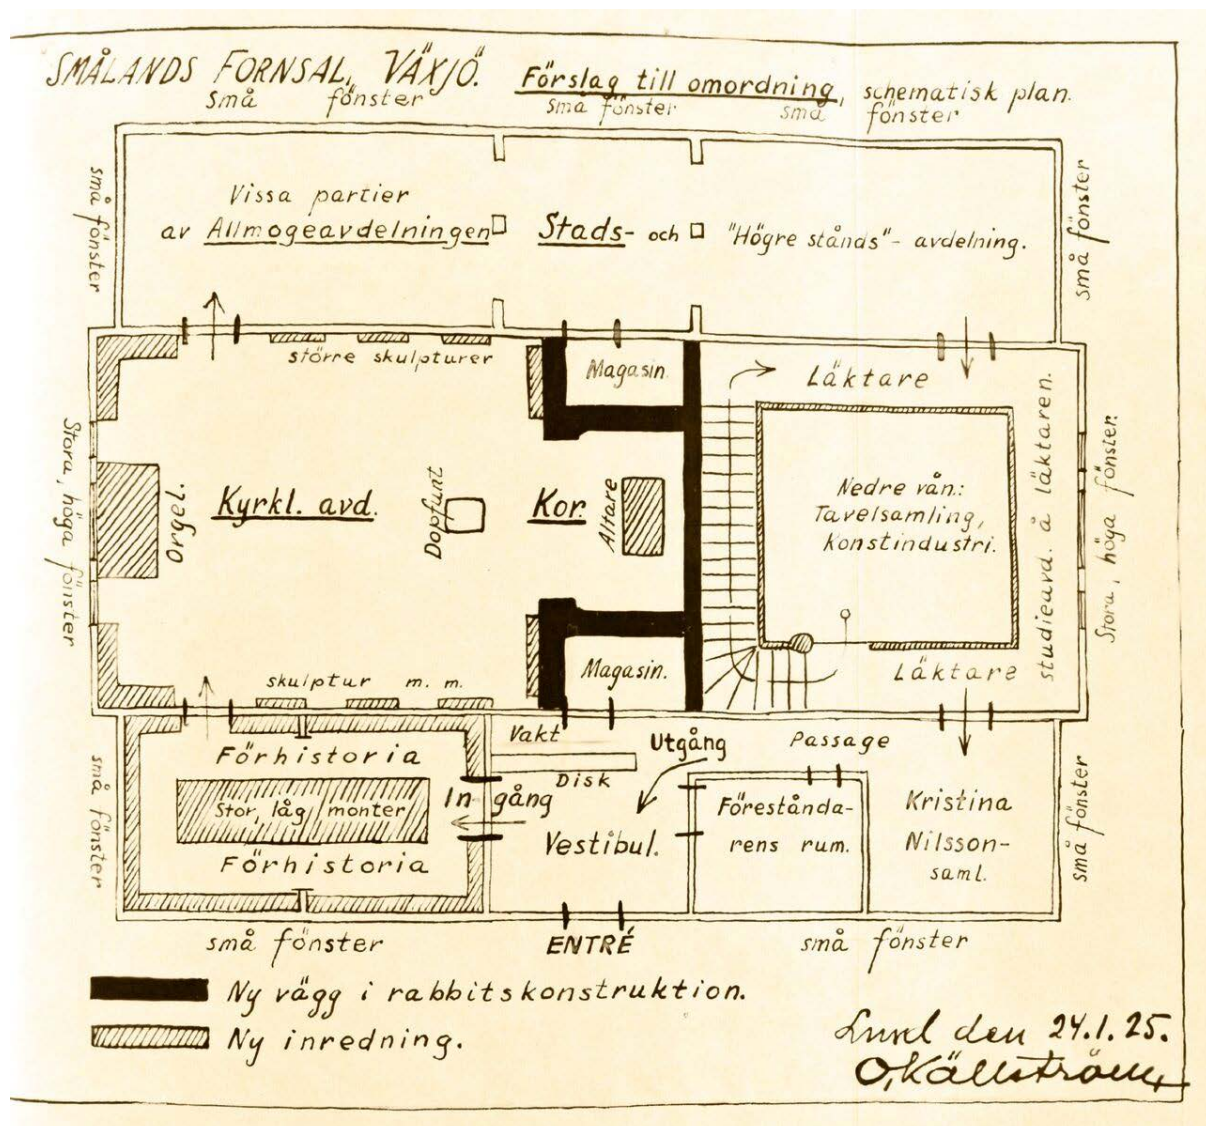 SMÅLANDS FORNSAL, VÄXJÖ. Förslag till omordning, schematisk plan.
små fönster små fönster små fönster
små fönster
Vissa partier
av Allmogeavdelningen
Stads- och
"Högre stånds"- avdelning.
små fönster
större skulpturer
Magasin.
Läktare
Stora, höga fönster
Orgel.
Kyrkl. avd.
Dopfunt
Kor.
Altare
Nedre vån.:
Tavelsamling,
Konstindustri.
studieavd. å läktaren.
Stora, höga fönster.
skulptur m. m.
Magasin.
Läktare
små fönster
Förhistoria
Stor, låg monter
Förhistoria
Vakt
Disk
Ingång
Utgång
Vestibul.
Passage
Förestånda-
rens rum.
Kristina
Nilsson-
saml.
små fönster
små fönster
ENTRÉ
små fönster
Ny vägg i rabbitskonstruktion.
Ny inredning.
Lund den 24.1.25.
O. Källström